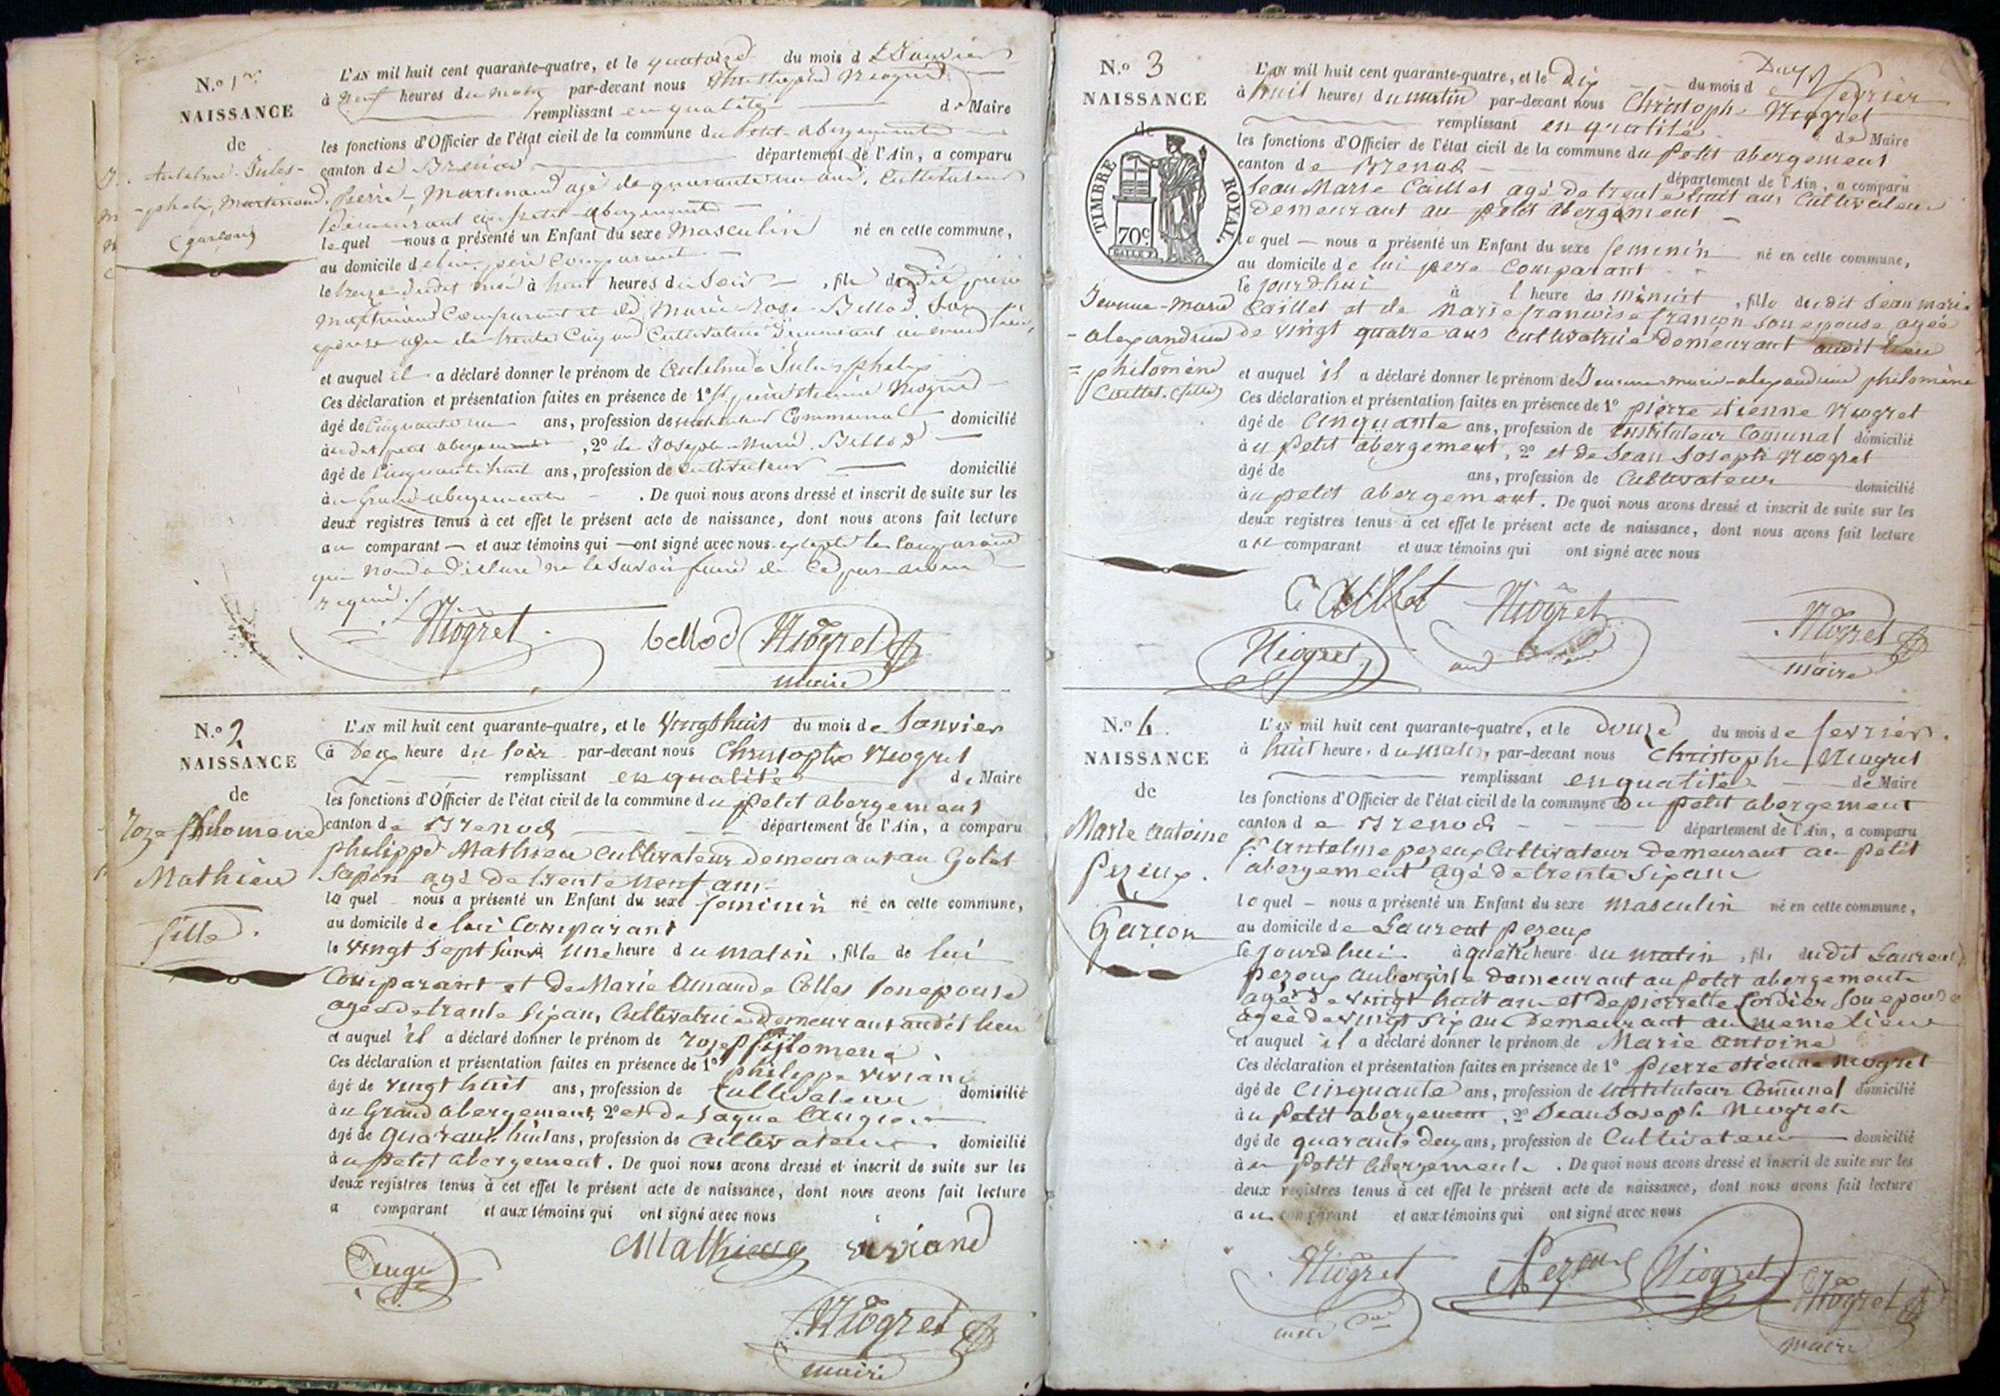 N.° 1er
NAISSANCE
de
Anselme Jules-
phelix, Martinand
(garçon)
L'AN mil huit cent quarante-quatre, et le quatorze du mois de Janvier
à neuf heures du matin par-devant nous Christophe Niogret
remplissant en qualité de Maire
les fonctions d'Officier de l'état civil de la commune du Petit-abergement
canton de Brenod département de l'Ain, a comparu
pierre Martinand agé de quarante un ans, Cultivateur
Demeurant au petit abergement
lequel nous a présenté un Enfant du sexe Masculin né en cette commune,
au domicile de lui père Comparant
le treize dudit mois à huit heures du Soir, fils dudit pierre
Martinand Comparant et de Marie-Rose Bellod Son
épouse agée de trente Cinq ans Cultivatrice Demeurant au même lieu,
et auquel il a déclaré donner le prénom de Anselme Jules phelix
Ces déclaration et présentation faites en présence de 1° pierre étienne Niogret
âgé de Cinquante un ans, profession de instituteur Communal domicilié
audit petit abergement, 2° de Joseph-Marie Bellod
âgé de Cinquante huit ans, profession de Cultivateur domicilié
au Grand abergement. De quoi nous avons dressé et inscrit de suite sur les
deux registres tenus à cet effet le présent acte de naissance, dont nous avons fait lecture
au comparant et aux témoins qui ont signé avec nous excepté le Comparant
qui Nous a Déclaré ne le Savoir faire de Ce
requis.
Niogret bellod Niogret
maire
N.° 2
NAISSANCE
de
roze philomene
Mathieu
fille
L'AN mil huit cent quarante-quatre, et le vingt huit du mois de Janvier
à Deux heure du soir par-devant nous Christophe Niogret
remplissant en qualité de Maire
les fonctions d'Officier de l'état civil de la commune du petit abergement
canton de Brenod département de l'Ain, a comparu
philippe Mathieu Cultivateur demeurant au Golet
Sapin agé de trente neuf ans
lequel nous a présenté un Enfant du sexe feminin né en cette commune,
au domicile de lui Comparant
le vingt sept à une heure du matin, fille de lui
Comparant et de Marie Amande Colles son epouse
agée de trante six ans, Cultivatrice Demeurant audit lieu
et auquel il a déclaré donner le prénom de roze philomene
Ces déclaration et présentation faites en présence de 1° philippe viviand
âgé de vingt huit ans, profession de Cultivateur domicilié
au Grand abergement, 2° et de Jaque
âgé de quarante huit ans, profession de Cultivateur domicilié
au petit abergement. De quoi nous avons dressé et inscrit de suite sur les
deux registres tenus à cet effet le présent acte de naissance, dont nous avons fait lecture
a comparant et aux témoins qui ont signé avec nous
Mathieu viviand
Niogret
maire
N.° 3
NAISSANCE
de
TIMBRE ROYAL.
70c.
Jeunne-marie
alexandrine
philomène
Caillet (fille)
L'AN mil huit cent quarante-quatre, et le Dix du mois de fevrier
à huit heures du matin par-devant nous Christophe Niogret
remplissant en qualité de Maire
les fonctions d'Officier de l'état civil de la commune du petit abergement
canton de Brenod département de l'Ain, a comparu
Jean Marie Caillet agé de trente huit ans Cultivateur
demeurant au petit abergement
lequel nous a présenté un Enfant du sexe feminin né en cette commune,
au domicile de lui pere Comparant
le jourdhui à 1 heure de minuit, fille dudit Jean marie
Caillet et de Marie francoise françon son epouse agée
de vingt quatre ans cultivatrice demeurant audit lieu
et auquel il a déclaré donner le prénom de Jeunne-marie-alexandrine philomène
Ces déclaration et présentation faites en présence de 1° pierre etienne Niogret
âgé de Cinquante ans, profession de instituteur Comunal domicilié
au petit abergement, 2° et de Jean Joseph Niogret
âgé de ans, profession de Cultivateur domicilié
au petit abergement. De quoi nous avons dressé et inscrit de suite sur les
deux registres tenus à cet effet le présent acte de naissance, dont nous avons fait lecture
au comparant et aux témoins qui ont signé avec nous
Caillet Niogret
Niogret Niogret
maire
N.° 4
NAISSANCE
de
Marie antoine
Pereux.
Garçon
L'AN mil huit cent quarante-quatre, et le Douze du mois de fevrier.
à huit heure du matin, par-devant nous Christophe Niogret
remplissant en qualité de Maire
les fonctions d'Officier de l'état civil de la commune du petit abergement
canton de Brenod département de l'Ain, a comparu
antelme pereux Cultivateur demeurant au petit
abergement agé de trente six ans
lequel nous a présenté un Enfant du sexe masculin né en cette commune,
au domicile de Laurent pereux
le jourdhui à quatre heure du matin, fils dudit Laurent
pereux aubergiste demeurant au petit abergement
agé de vingt huit ans et de pierrette Cordier son epouse
agée de vingt six ans Demeurant au meme lieu
et auquel il a déclaré donner le prénom de Marie antoine
Ces déclaration et présentation faites en présence de 1° pierre etienne Niogret
âgé de Cinquante ans, profession de instituteur Comunal domicilié
au petit abergement, 2° Jean Joseph Niogret
âgé de quarante deux ans, profession de Cultivateur domicilié
au petit abergement. De quoi nous avons dressé et inscrit de suite sur les
deux registres tenus à cet effet le présent acte de naissance, dont nous avons fait lecture
au comparant et aux témoins qui ont signé avec nous
Niogret Pereux Niogret Niogret
maire